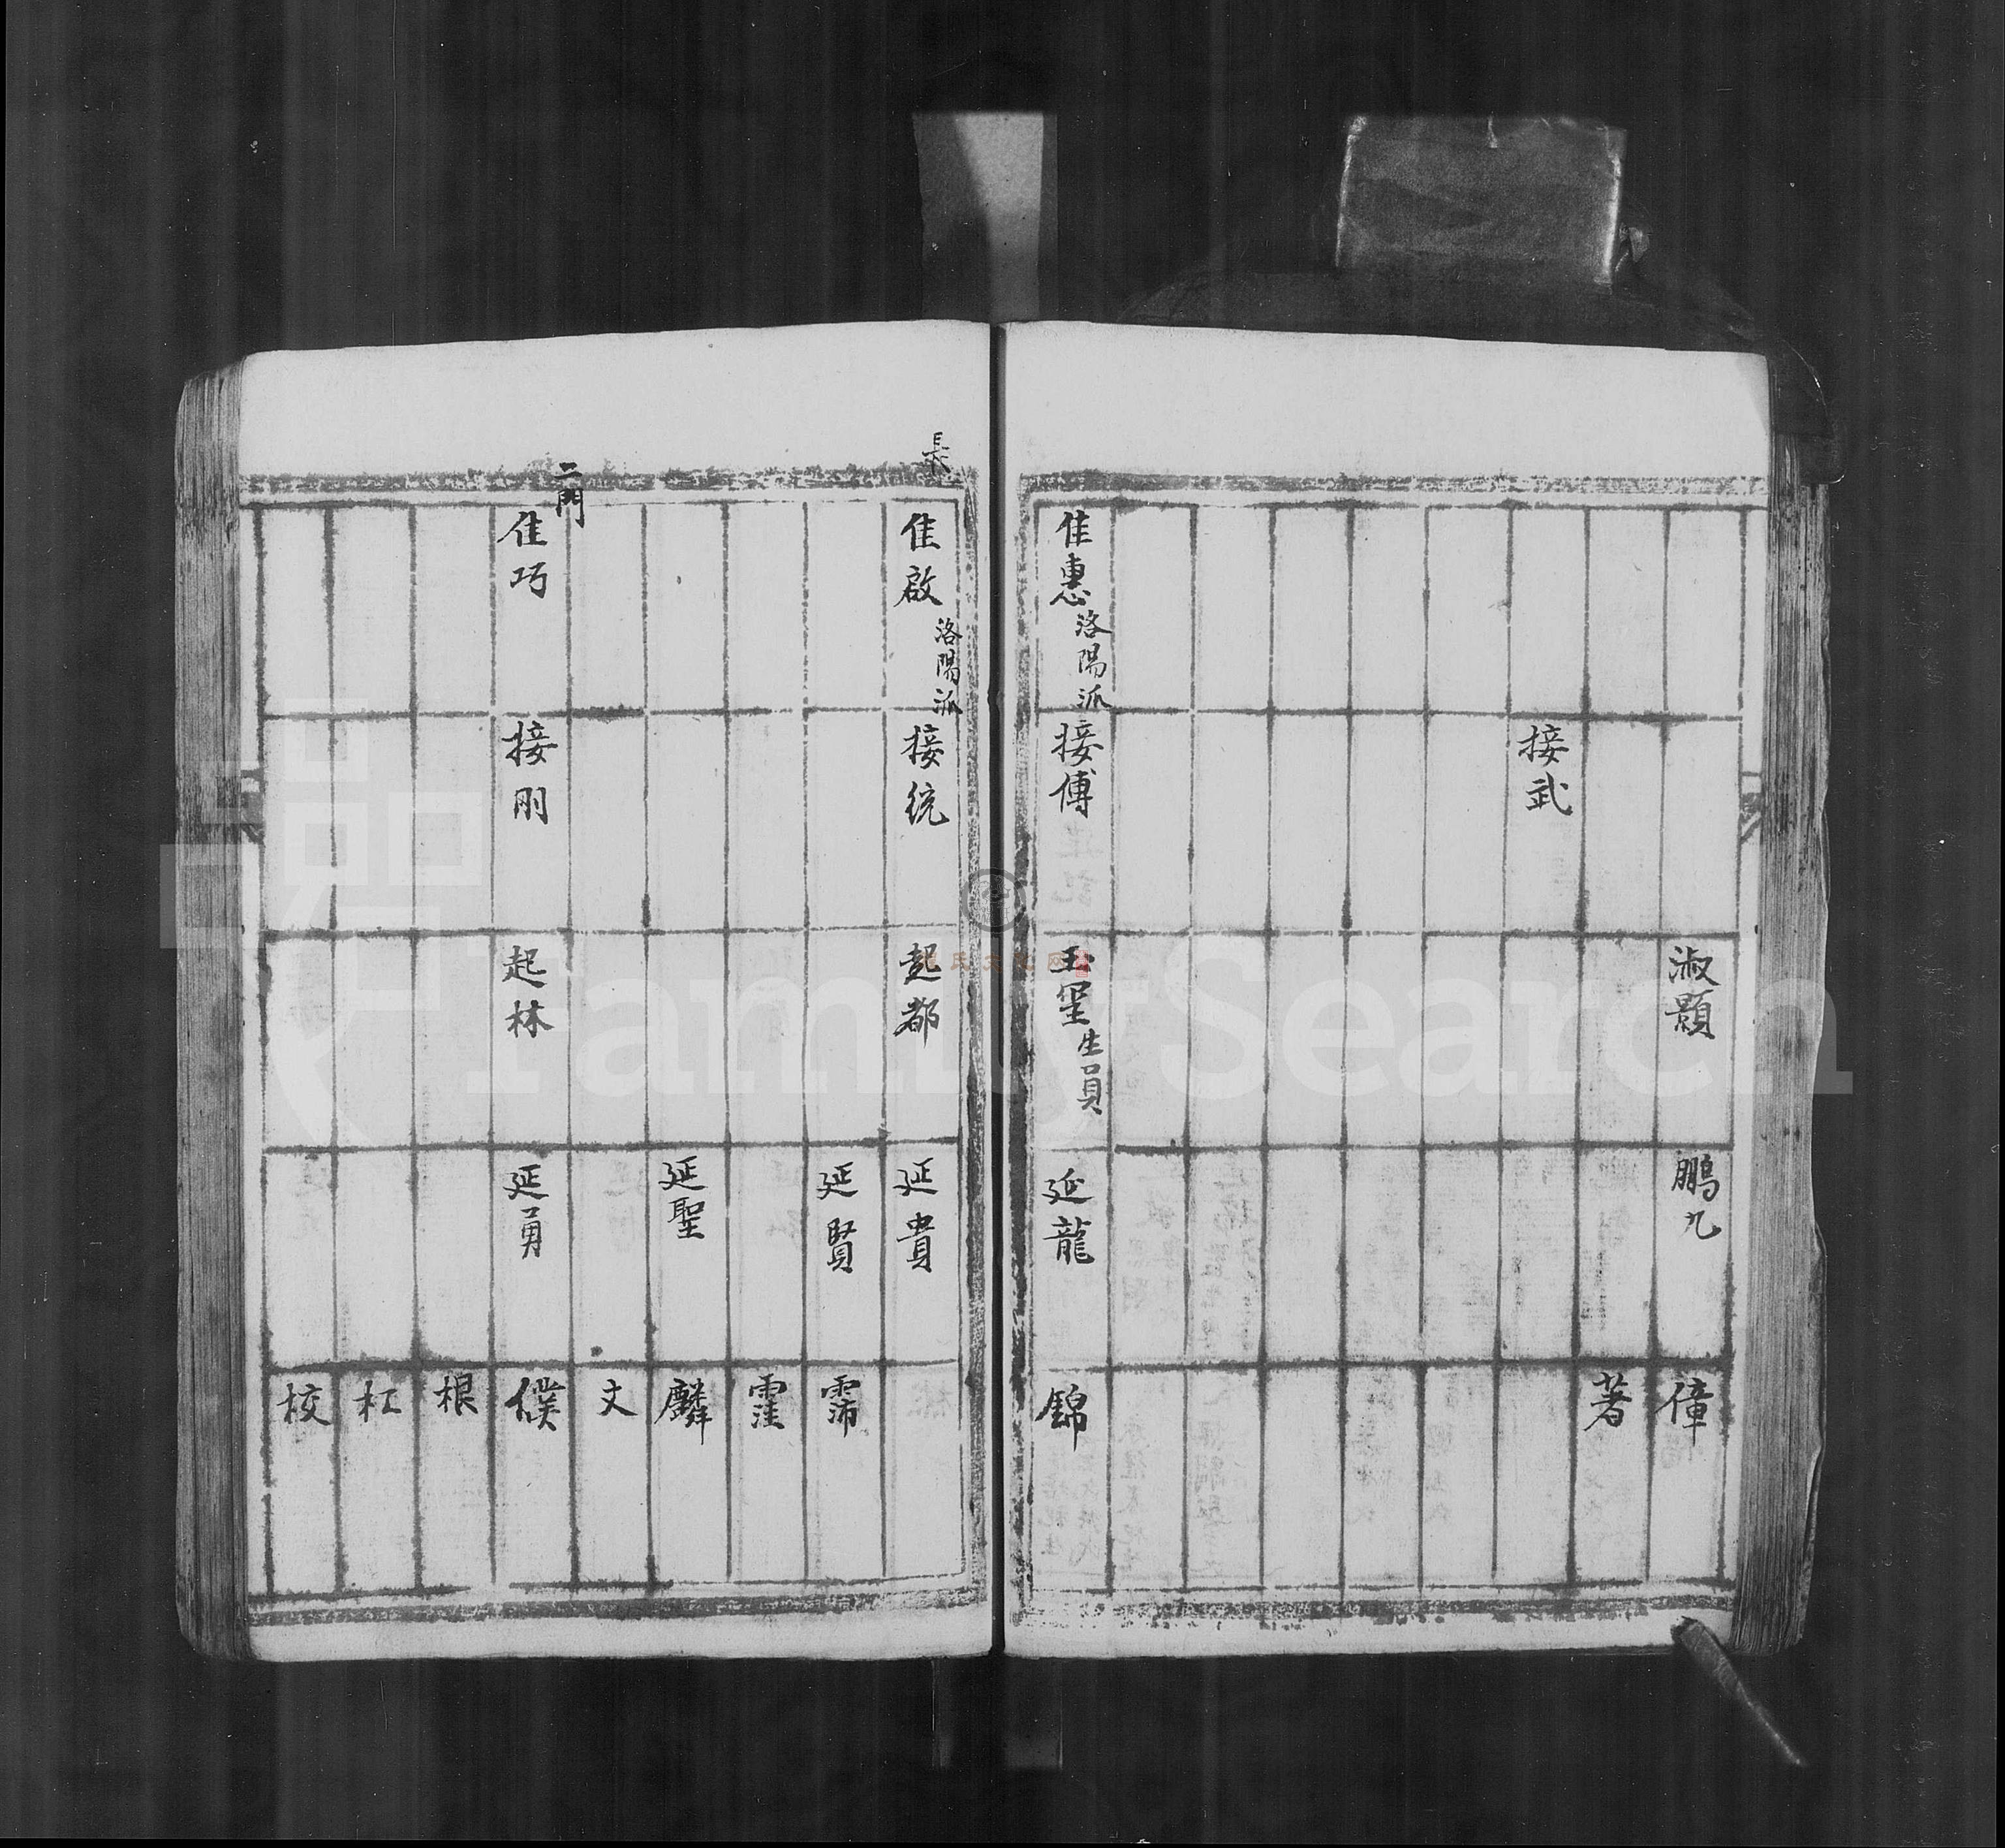 淑顥
鵬九
偉
著
接武
佳惠 洛陽派
接傅
玉堂 生員
延龍
錦
長
佳啟 洛陽派
接統
起都
延貴
延賢
霈
霔
延聖
麟
文
二門
佳巧
接剛
起林
延勇
僕
根
杠
校
FamilySearch